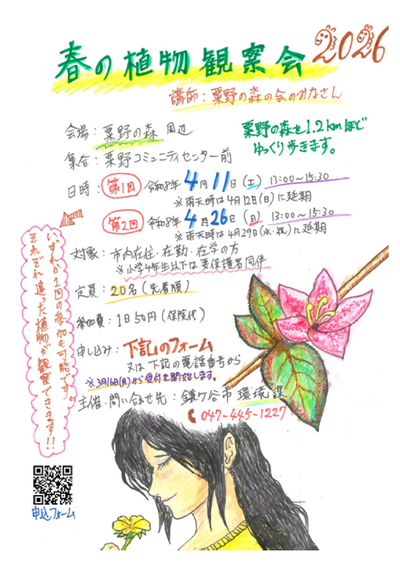 春の植物観察会 2026
講師：粟野の森の会のみなさん
会場：粟野の森 周辺
粟野の森を1.2kmほど
ゆっくり歩きます。
集合：粟野コミュニティセンター前
日時：第1回 令和8年4月11日(土) 13:00～15:30
※雨天時は4月12日(日)に延期
第2回 令和8年4月26日(日) 13:00～15:30
※雨天時は4月29日(水・祝)に延期
対象：市内在住・在勤・在学の方
※小学4年生以下は要保護者同伴
定員：20名(先着順)
参加費：1日50円(保険代)
申し込み：下記のフォーム
又は下記の電話番号から
※3月16日(月)から受付を開始します。
主催・問い合せ先：鎌ケ谷市 環境課
047-445-1227
いずれか1回の参加も可能です。
それぞれ違った植物が観察できます!!
申込フォーム